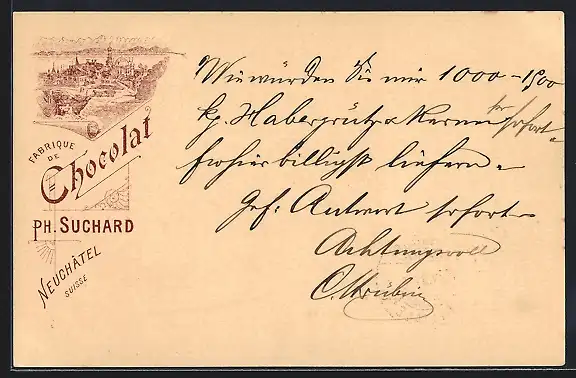 FABRIQUE
DE
Chocolat
PH. SUCHARD
NEUCHÂTEL
SUISSE
Wie würden Sie mir 1000 – 1500
kg. Habergrütz Kerne sofort
frohier billigst liefern.
Gef. Antwort sofort
Achtungsvoll